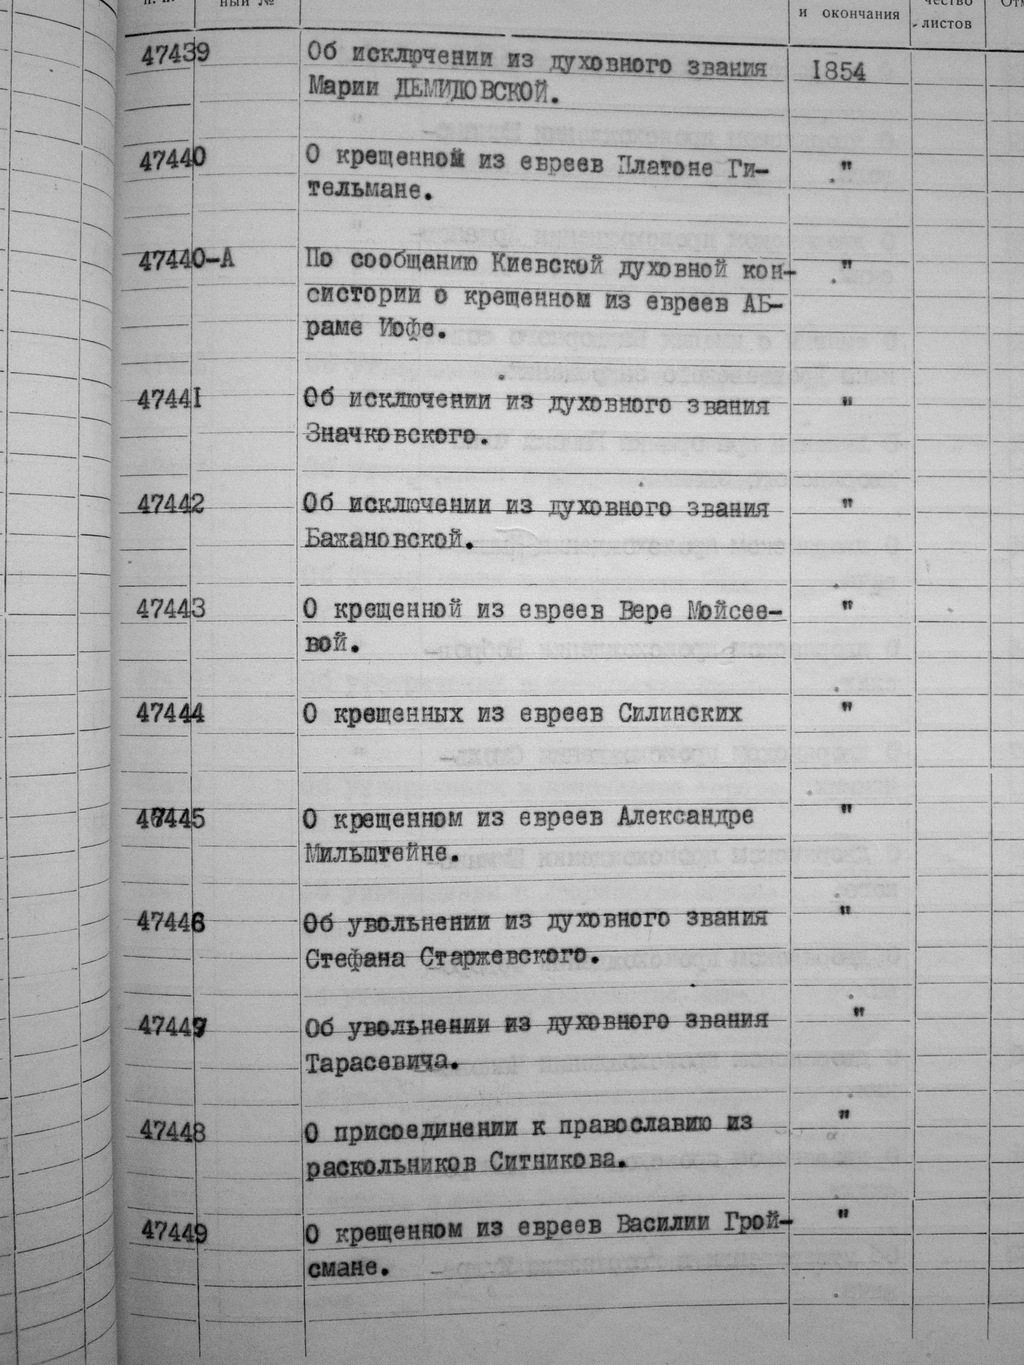 ный №
и окончания
чество
листов
47439 Об исключении из духовного звания 1854
Марии ДЕМИДОВСКОЙ.
47440 О крещенной из евреев Платоне Ги- "
тельмане.
47440-А По сообщению Киевской духовной кон- "
систории о крещенном из евреев АБ-
раме Иофе.
47441 Об исключении из духовного звания "
Значковского.
47442 Об исключении из духовного звания "
Бажановской.
47443 О крещенной из евреев Вере Мойсее- "
вой.
47444 О крещенных из евреев Силинских "
47445 О крещенном из евреев Александре "
Мильштейне.
47446 Об увольнении из духовного звания "
Стефана Старжевского.
47447 Об увольнении из духовного звания "
Тарасевича.
47448 О присоединении к православию из "
раскольников Ситникова.
47449 О крещенном из евреев Василии Грой- "
смане.